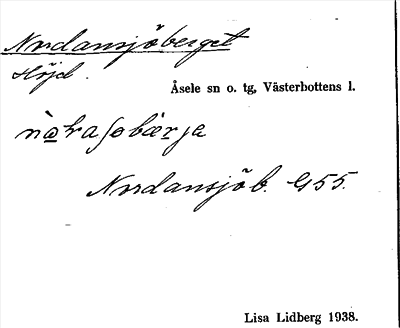 Nordansjöberget
Höjd.
Åsele sn o. tg, Västerbottens l.
Nordansjö b. G 55.
Lisa Lidberg 1938.